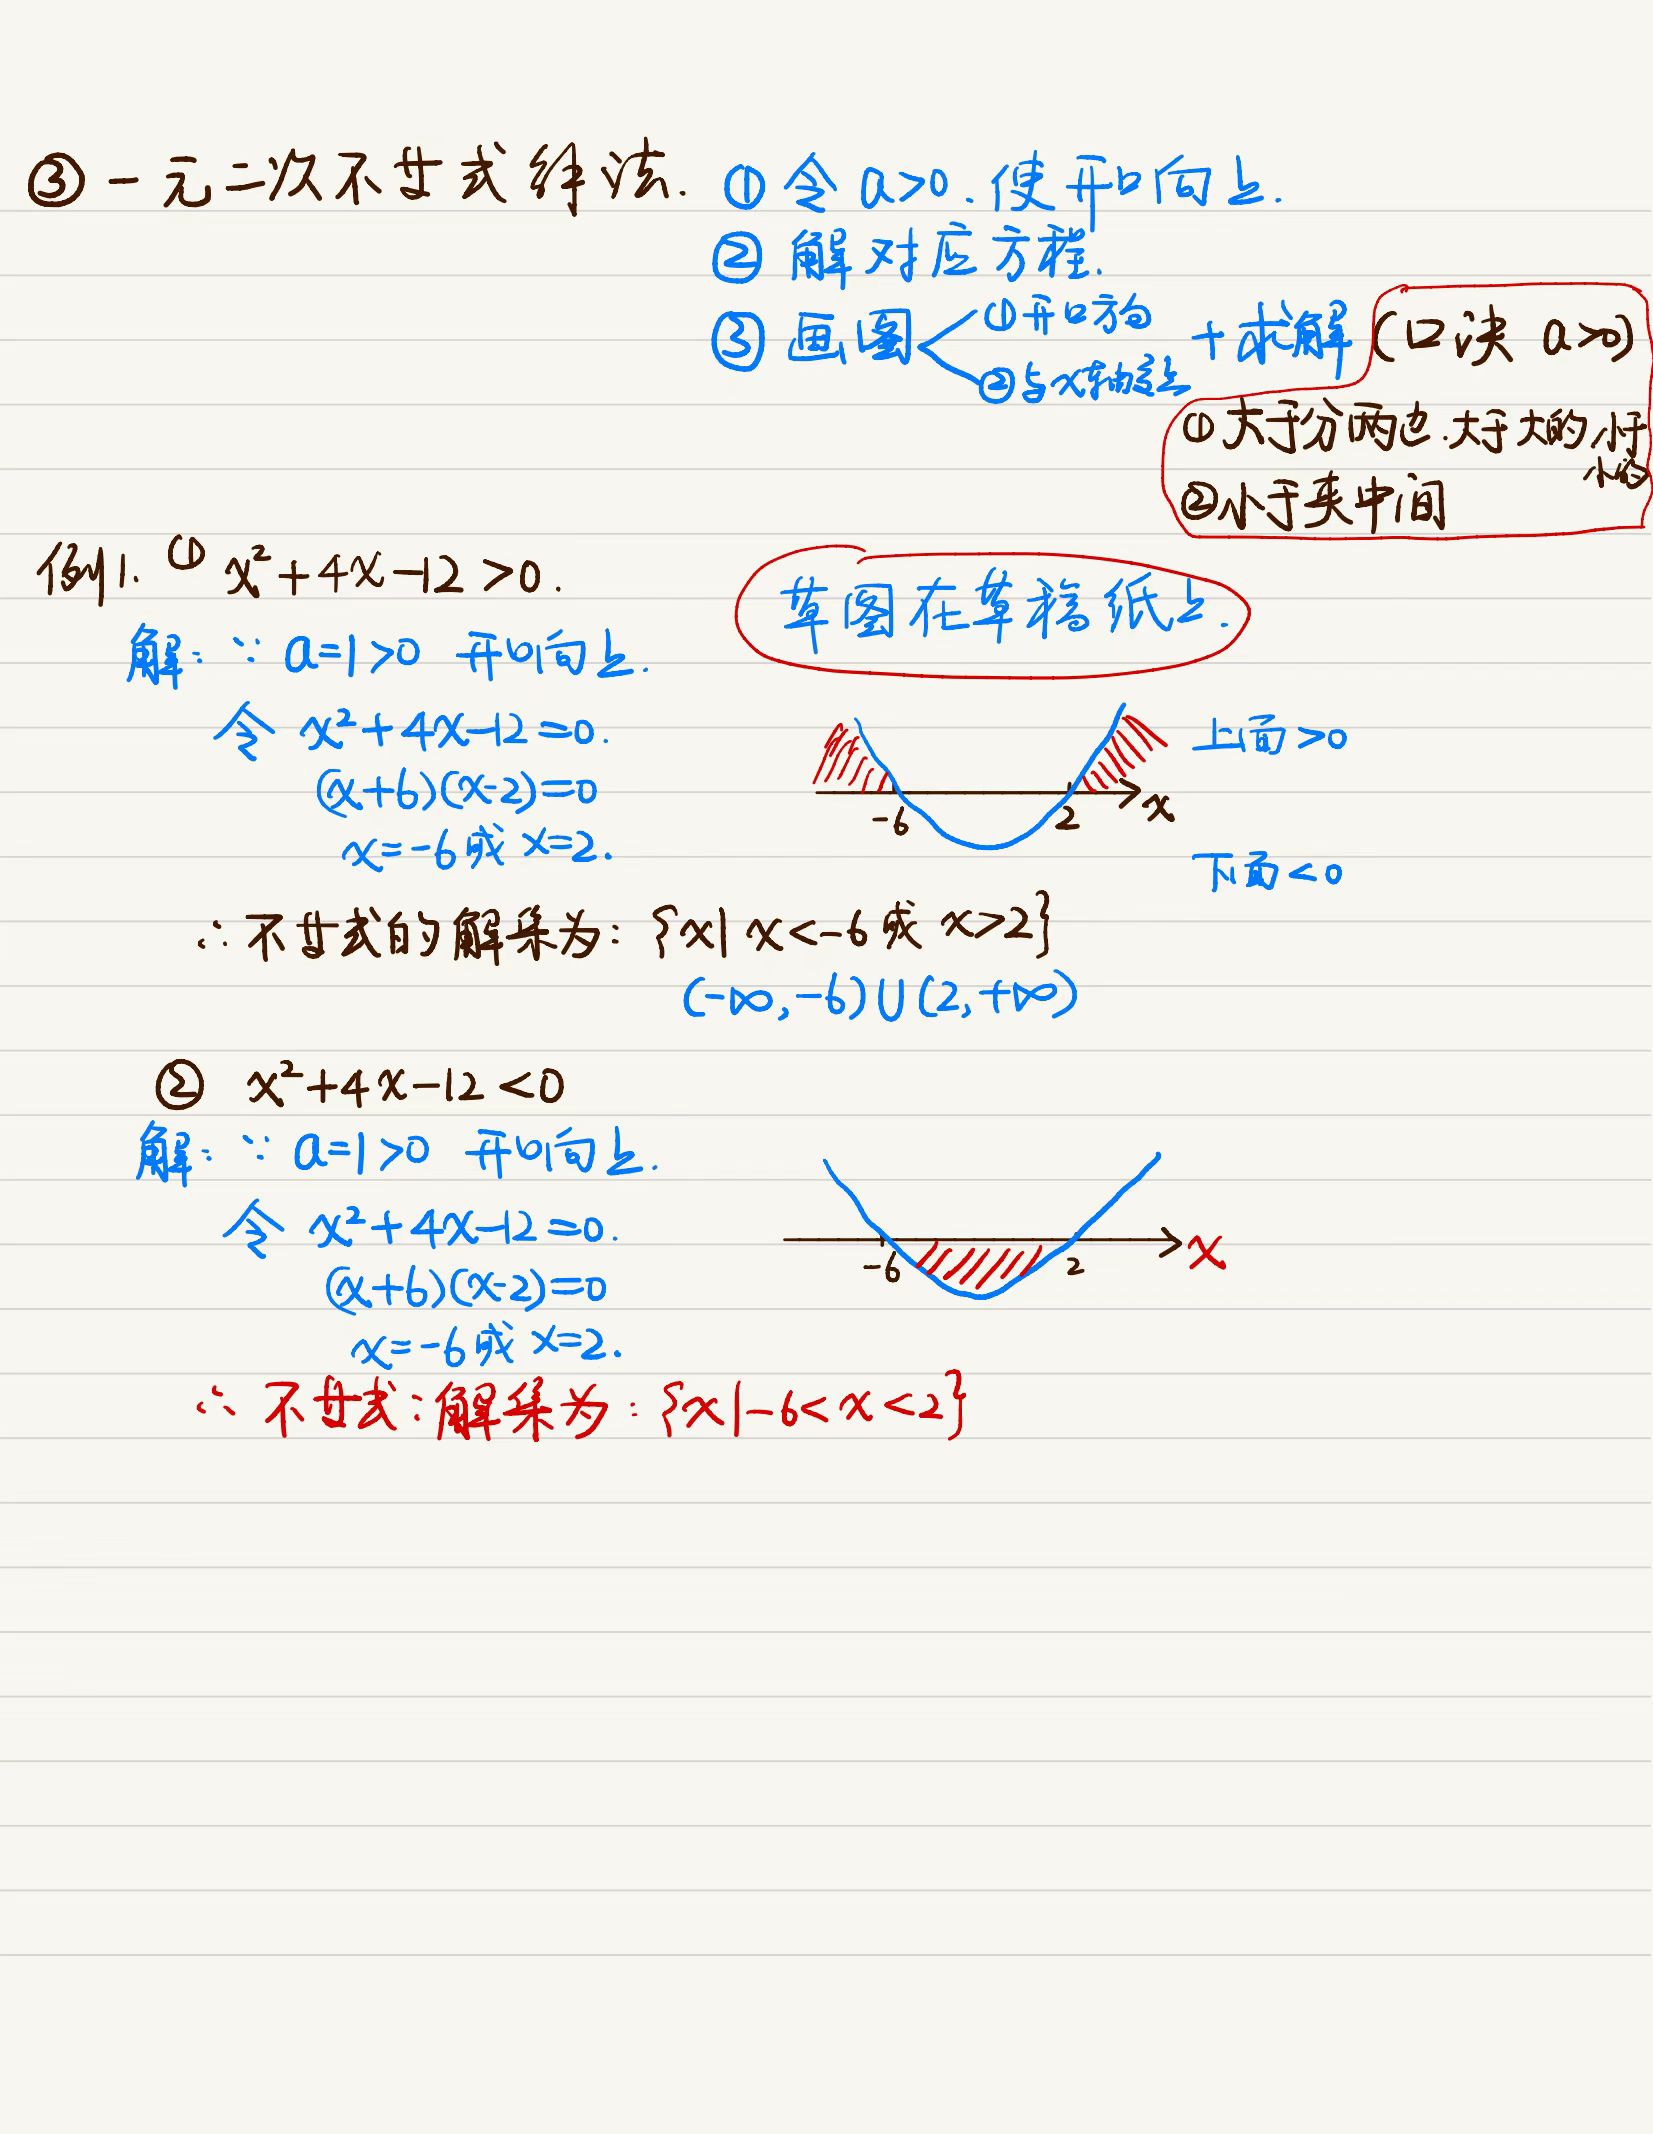 ③一元二次不等式解法.
①令 a>0.使开口向上.
②解对应方程.
③画图 ①开口方向 ②与x轴交点 +求解 (口诀 a>0)
①大于分两边.大于大的小于小的
②小于夹中间
例1. ① x²+4x-12>0.
草图在草稿纸上.
解: ∵ a=1>0 开口向上.
令 x²+4x-12=0.
(x+6)(x-2)=0
x=-6或 x=2.
上面>0
-6 2 x
下面<0
∴不等式的解集为: {x| x<-6或 x>2}
(-∞,-6)∪(2,+∞)
② x²+4x-12<0
解: ∵ a=1>0 开口向上.
令 x²+4x-12=0.
(x+6)(x-2)=0
x=-6或 x=2.
-6 2 x
∴ 不等式:解集为: {x|-6<x<2}